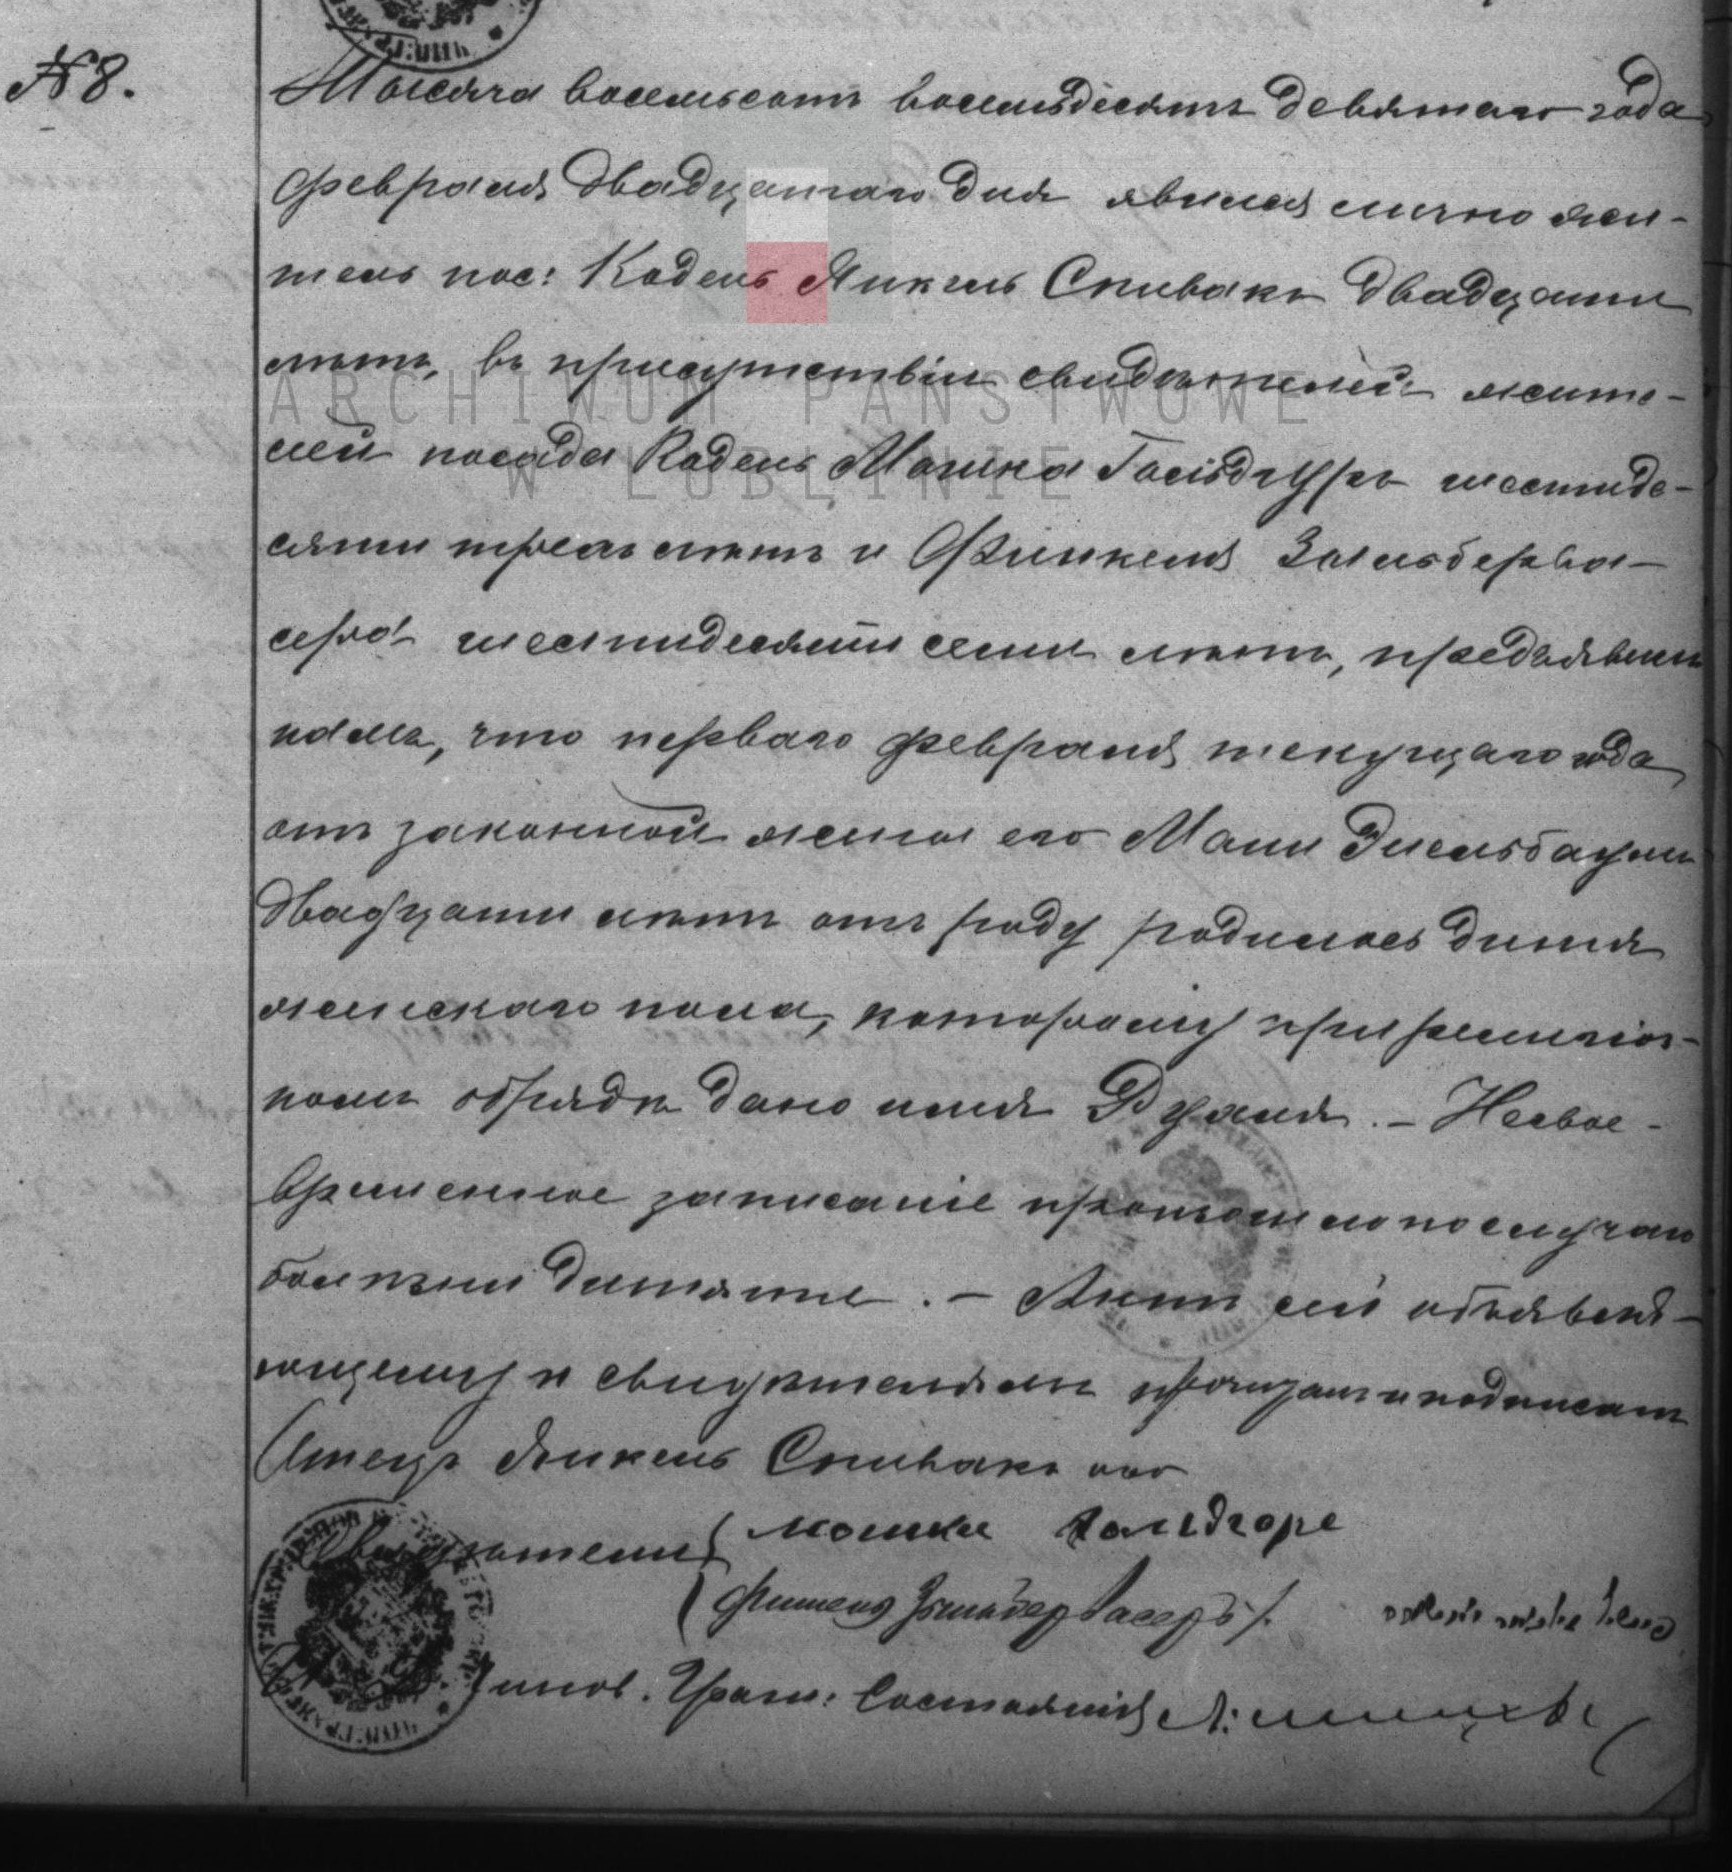 № 8.
Тысяча восемьсотъ восемьдесятъ девятаго года
февраля двадцатаго дня явился лично жи-
тель пос: Кодень Янкель Спивакъ двадцати
лѣтъ, въ присутствіи свидѣтелей жите-
лей посада Кодень Мошка Гольдгуръ шестиде-
сяти трехъ лѣтъ и Финкеля Зильберва-
сера шестидесяти семи лѣтъ, предъявилъ
намъ, что перваго февраля текущаго года
отъ законной жены его Мани Эйсельбаумъ
двадцати лѣтъ отъ роду родилось дитя
женскаго пола, которому при религіоз-
номъ обрядѣ дано имя Рухля. – Несвое-
временное записаніе произошло по случаю
болѣзни дитяти. – Актъ сей объявля-
ющему и свидѣтелямъ прочитанъ и подписанъ
Отецъ Янкель Спивакъ
Свидѣтели Мошка Голдгоре
Финкель Зильбервасеръ
Чинов. Граж: Состоянія
ARCHIWUM PAŃSTWOWE
W LUBLINIE